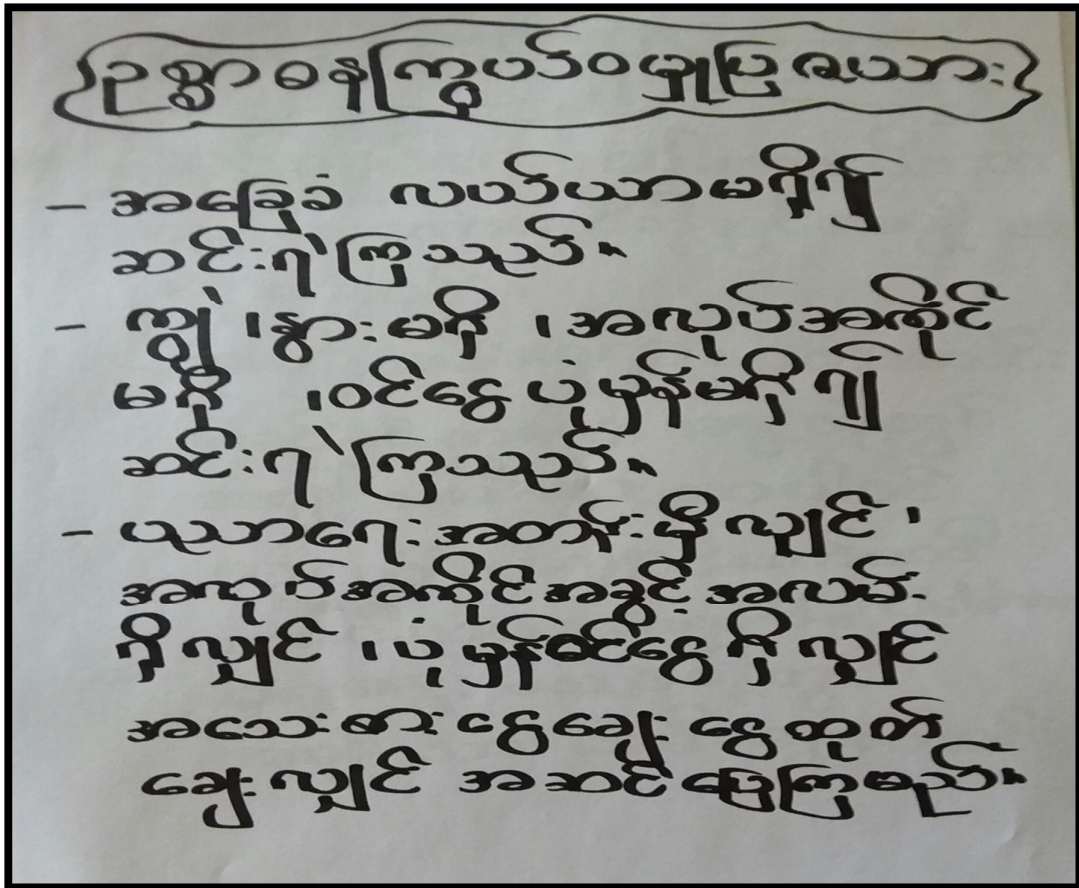 ဥစ္စာဓနကြွယ်ဝမှုပြဇယား
- အခြေခံ လယ်ယာမရှိ၍
ဆင်းရဲကြသည်။
- ကျွဲ၊ နွားမရှိ၊ အလုပ်အကိုင်
မရှိ၊ ဝင်ငွေပုံမှန်မရှိ၍
ဆင်းရဲကြသည်။
- ပညာရေးအတန်းရှိလျှင်၊
အလုပ်အကိုင်အခွင့်အလမ်း
ရှိလျှင်၊ ပုံမှန်ဝင်ငွေရှိလျှင်
အသေးစားငွေချေးငွေထုတ်
ချေးလျှင် အဆင်ပြေကြမည်။